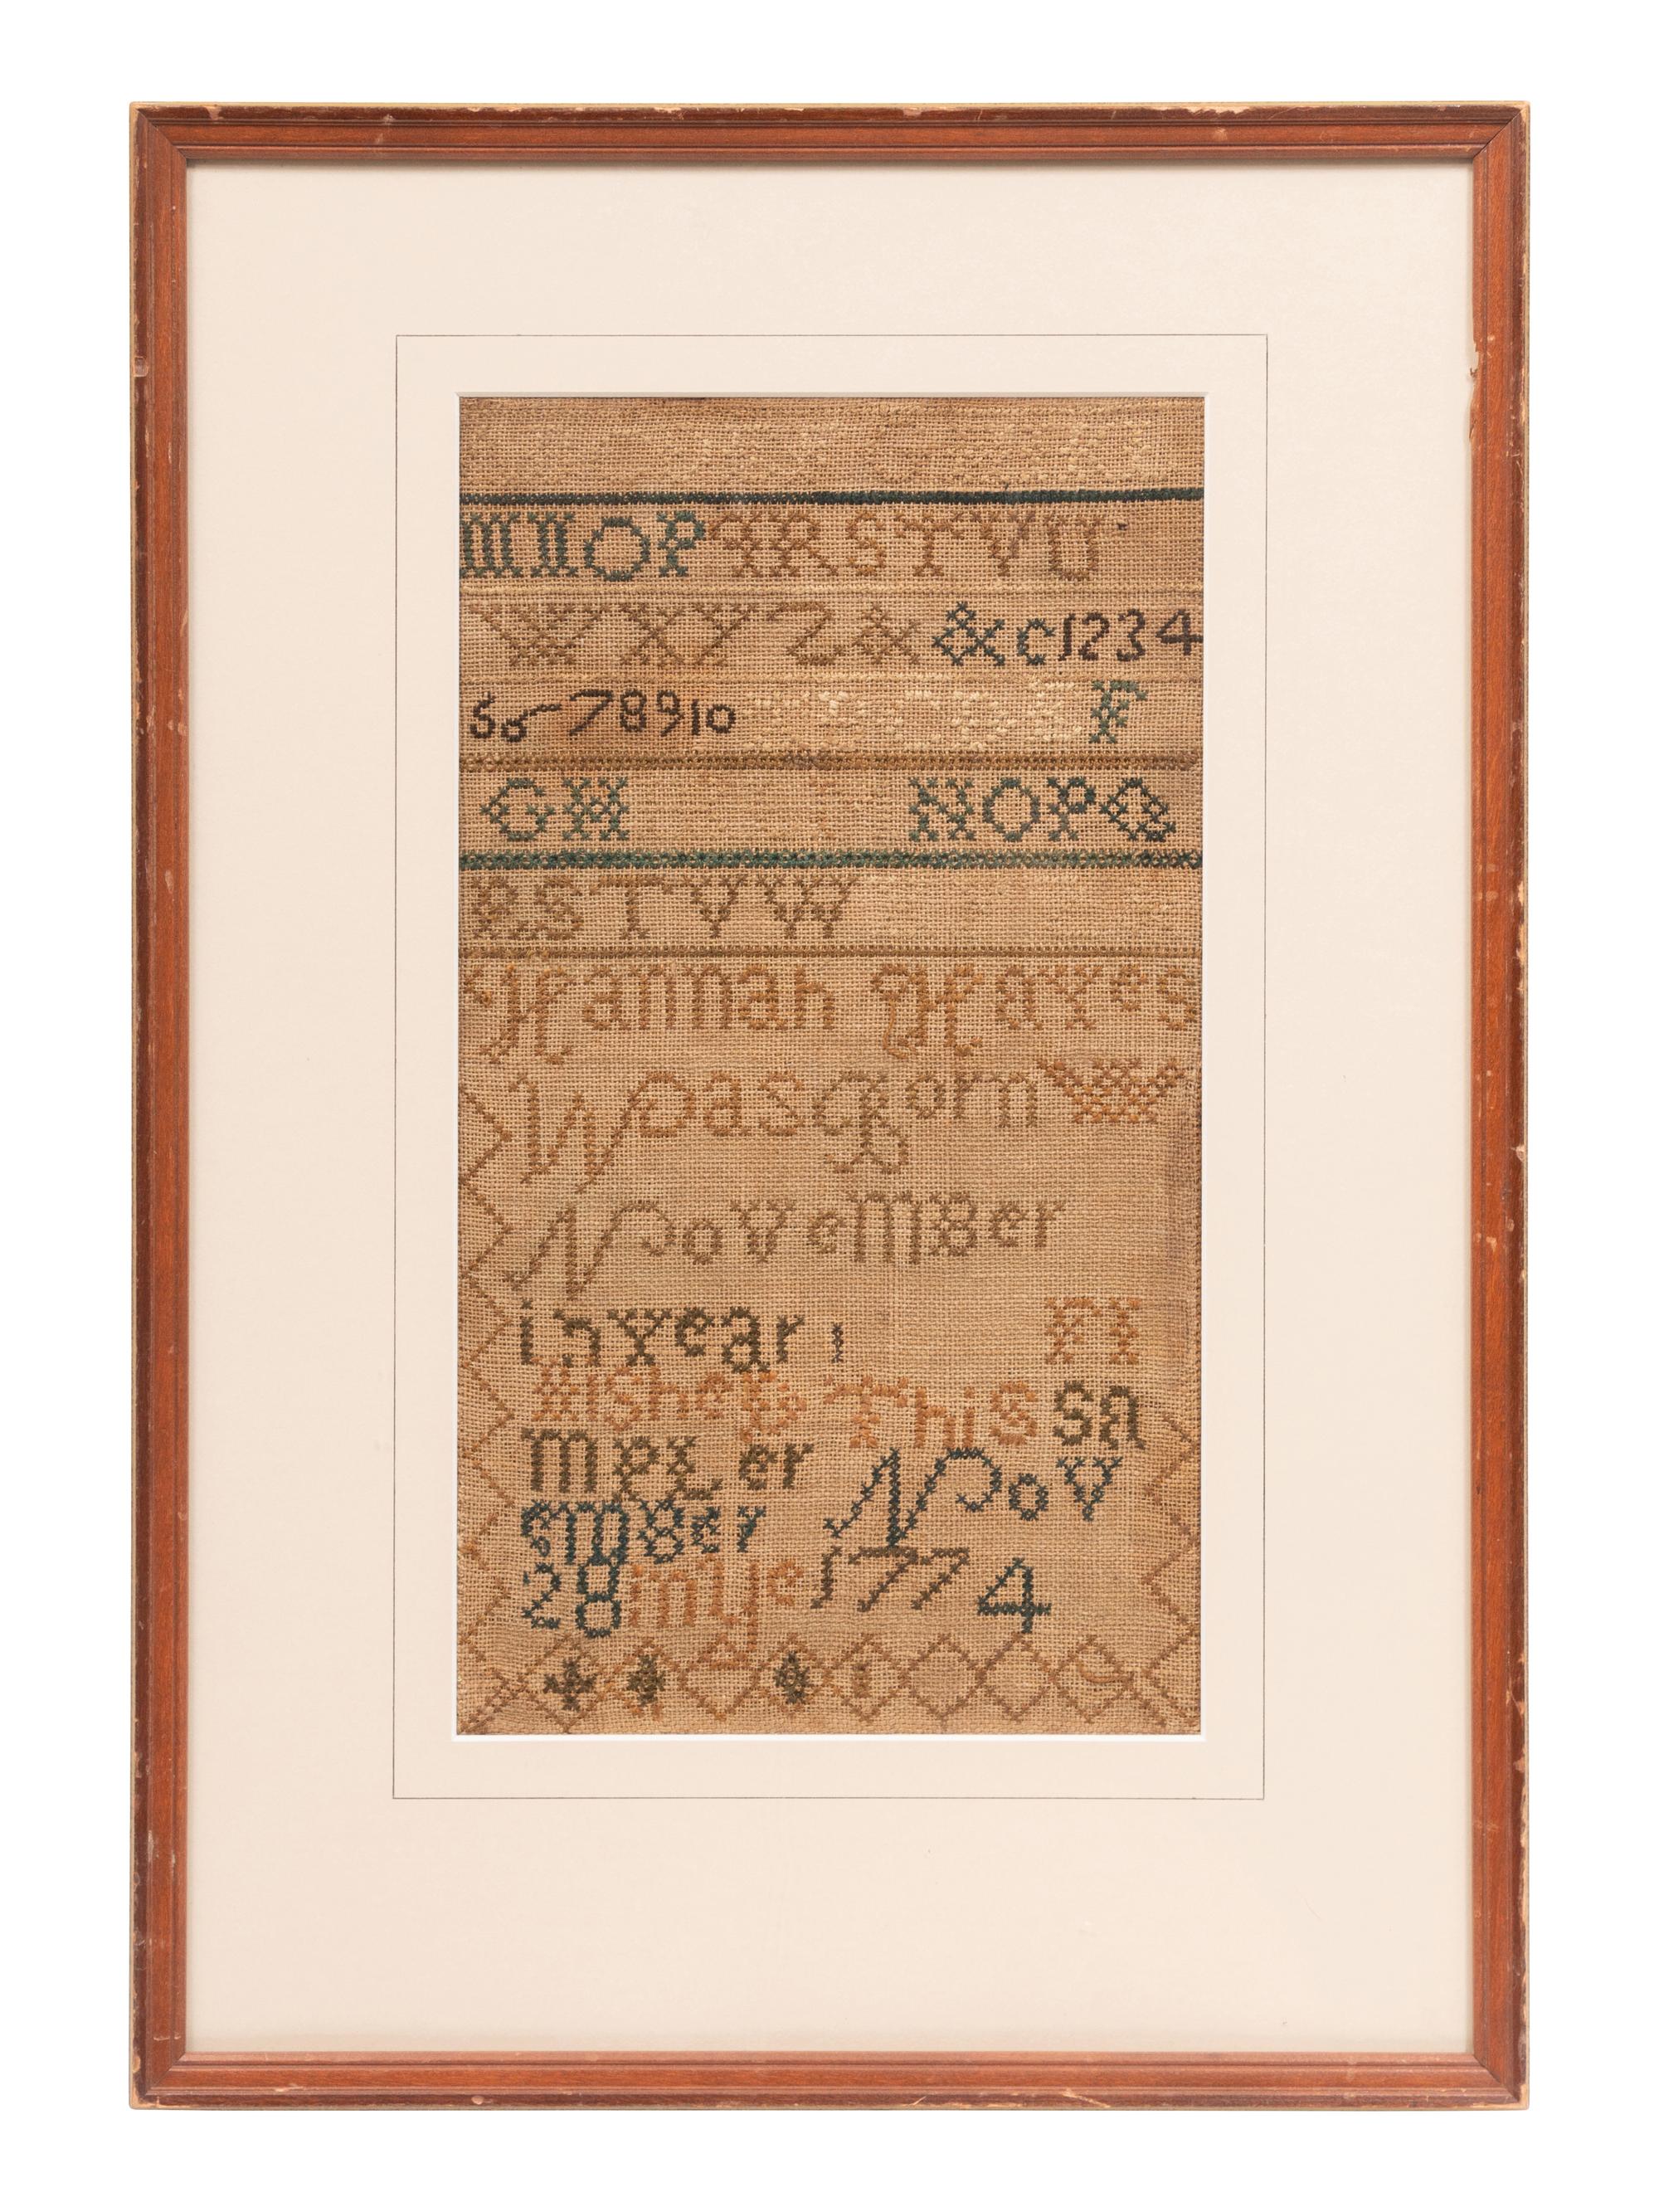 MNOPQRSTVU
WXYZ& &c1234
5678910 F
GH NOPQ
RSTVW
Hannah Hayes
Was Born W
November
in year 1 FI
nishe This sa
mpLer
emBer Nov
28 in ye 1774